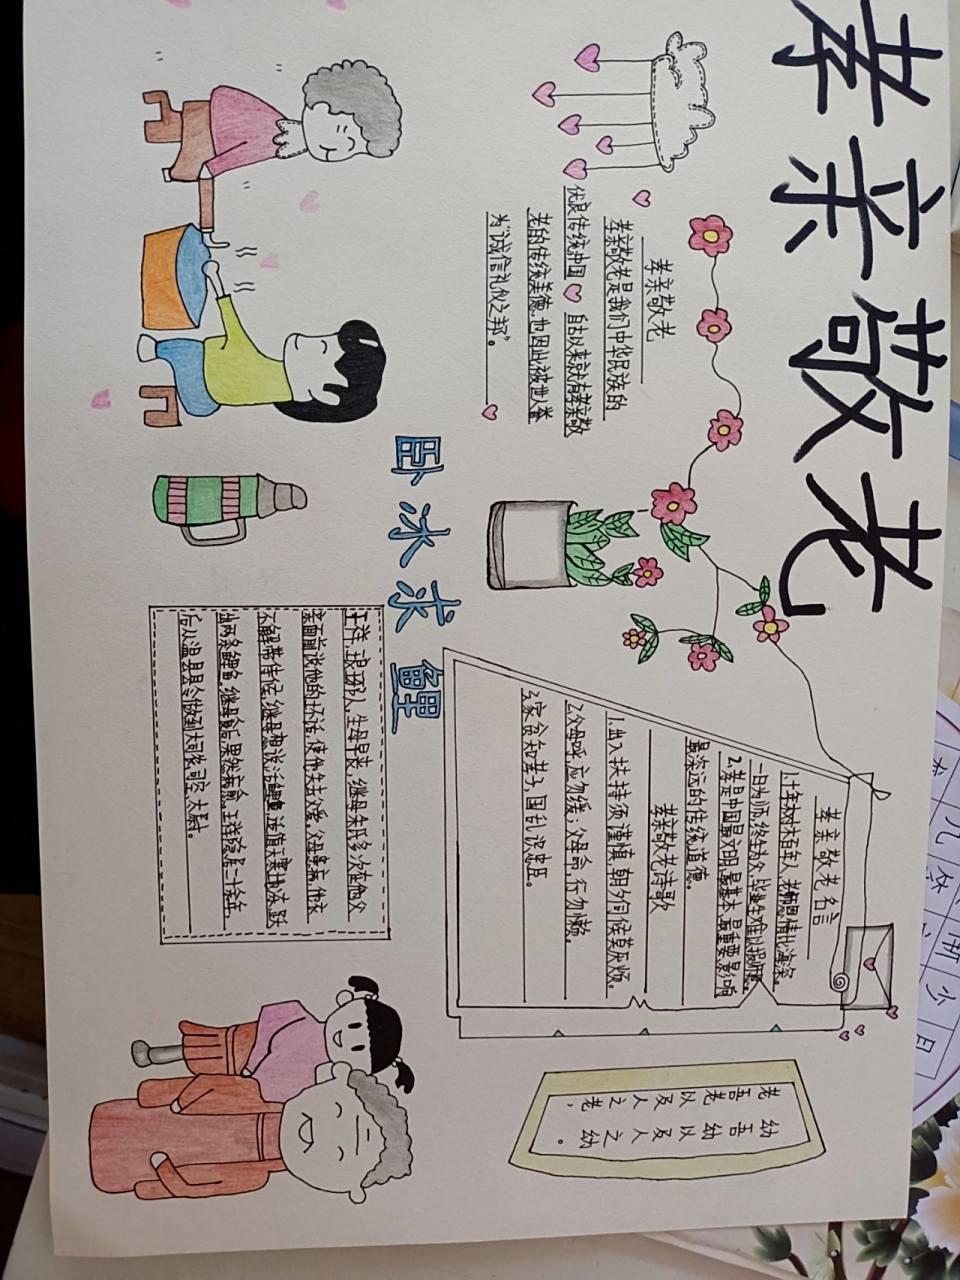 孝亲敬老
孝亲敬老
孝亲敬老是我们中华民族的
优良传统.中国自古以来就有孝亲敬
老的传统美德.也因此被世人誉
为"诚信礼仪之邦"。
卧冰求鲤
王祥,琅琊人,生母早丧,继母朱氏多次在他父
亲面前说他的坏话,使他失去父爱。父母患病,他衣
不解带侍候,继母想吃活鲤鱼,适值天寒地冻,跃
出两条鲤鱼。继母食后,果然病愈。王祥隐居二十余年,
后从温县县令做到大司农,司空,太尉。
孝亲敬老名言
1.十年树木百年人,老师恩情比海深。
一日为师,终生为父,毕业生难以报师恩。
2.孝是中国最文明,最基本,最重要,影响
最深远的传统道德。
孝亲敬老诗歌
1.出入扶持须谨慎,朝夕伺候莫厌烦。
2.父母呼,应勿缓;父母命,行勿懒。
3.家贫知孝子,国乱识忠臣。
老吾老以及人之老,
幼吾幼以及人之幼。